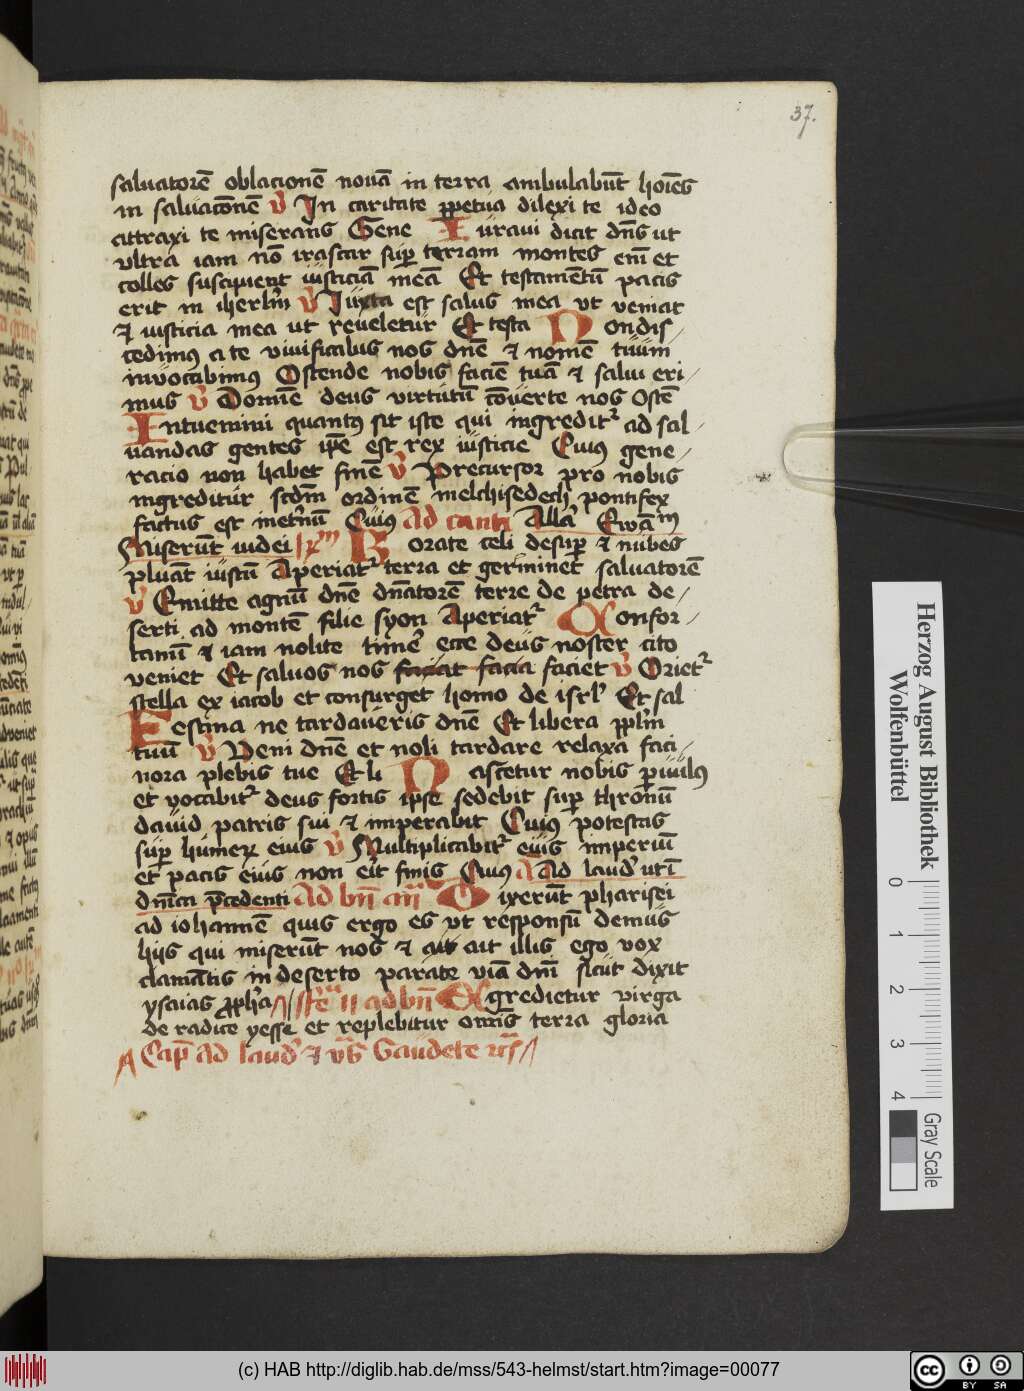 37.
saluatorē oblacionē nouā in terra ambulabūt hoiēs
in saluacōnē v̄ In caritate ꝑpetua dilexi te ideo
attraxi te miserans Gene Iuraui dicit dn̄s ut
ultra iam nō irascar suꝑ terram montes em̄ et
colles suscipient iusticiā meā Et testamentū pacis
erit in iherlm̄ v̄ Iuxta est salus mea ut veniat
⁊ iusticia mea ut reueletur Et testa Non dis/
cedimus a te viuificabis nos dn̄e ⁊ nomē tuum
inuocabimus Ostende nobis faciē tuā ⁊ salui eri/
mus v̄ Domīe deus virtutū cōuerte nos Ostē
Intuemini quantus sit iste qui ingreditr ad sal/
uandas gentes ip̄e est rex iusticie Cuius gene/
racio non habet finē v̄ Precursor pro nobis
ingreditur scd̄m ordinē melchisedech pontifex
factus est inet̄nū Cuius Ad canti Alla Ewām
Miserūt iudei lxm Rorate celi desuꝑ ⁊ nubes
pluāt iustū Aperiatr terra et germinet saluatorē
v̄ Emitte agnū dn̄e dn̄atorē terre de petra de/
serti ad montē filie syon Aperiatr Confor/
tamī ⁊ iam nolite timē ecce deus noster cito
veniet Et saluos nos faciat facia faciet v̄ Orietr
stella ex iacob et consurget homo de isrl Et sal
Festina ne tardaueris dn̄e Et libera pplm̄
tuū v̄ Veni dn̄e et noli tardare relaxa faci/
nora plebis tue Et li Nascetur nobis ꝑuulus
et vocabitr deus fortis ip̄se sedebit suꝑ thronū
dauid patris sui ⁊ imperabit Cuius potestas
suꝑ humeꝝ eius v̄ Multiplicabitr eius imperiū
et pacis eius non eit finis Cuius Ad laud ut ī
dn̄ica p̄cedenti Ad bn̄ an̄ Dixerūt pharisei
ad iohannē quis ergo es ut responsū demus
hiis qui miserūt nos ⁊ ait illis ego vox
clamātis in deserto parate viā dn̄i sicut dixit
ysaias ꝓpha fr̄e ii ad bn̄ Egredietur virga
de radice yesse et replebitur omīs terra gloria
Cap̄ ad laud ⁊ vs̄ Gaudete
Herzog August Bibliothek
Wolfenbüttel
0 1 2 3 4
Gray Scale
(c) HAB http://diglib.hab.de/mss/543-helmst/start.htm?image=00077
cc BY SA